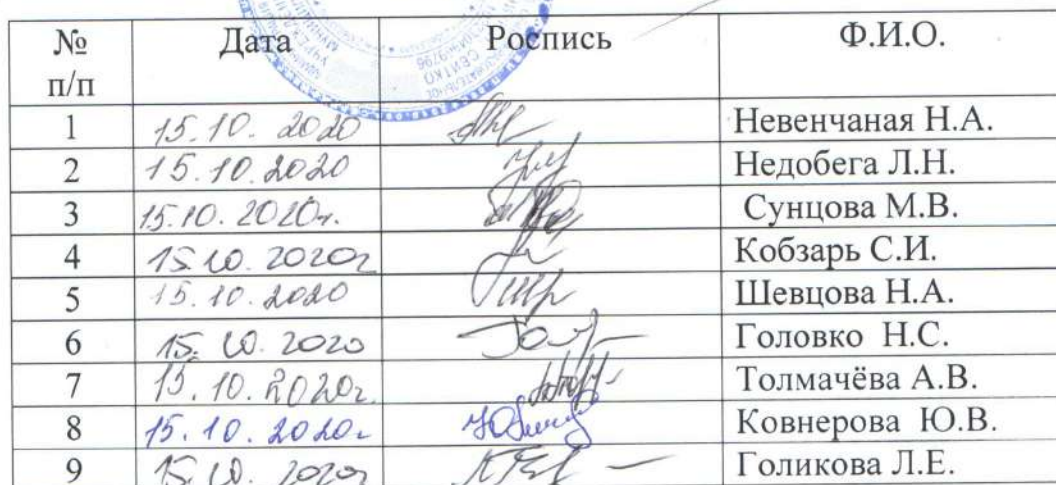 № п/п Дата Роспись Ф.И.О.
1 15.10. 2020 Невенчаная Н.А.
2 15.10.2020 Недобега Л.Н.
3 15.10. 2020г. Сунцова М.В.
4 15.10. 2020г Кобзарь С.И.
5 15.10.2020 Шевцова Н.А.
6 15. 10. 2020 Головко Н.С.
7 15.10.2020г. Толмачёва А.В.
8 15.10.2020г Ковнерова Ю.В.
9 15.10. 2020г Голикова Л.Е.